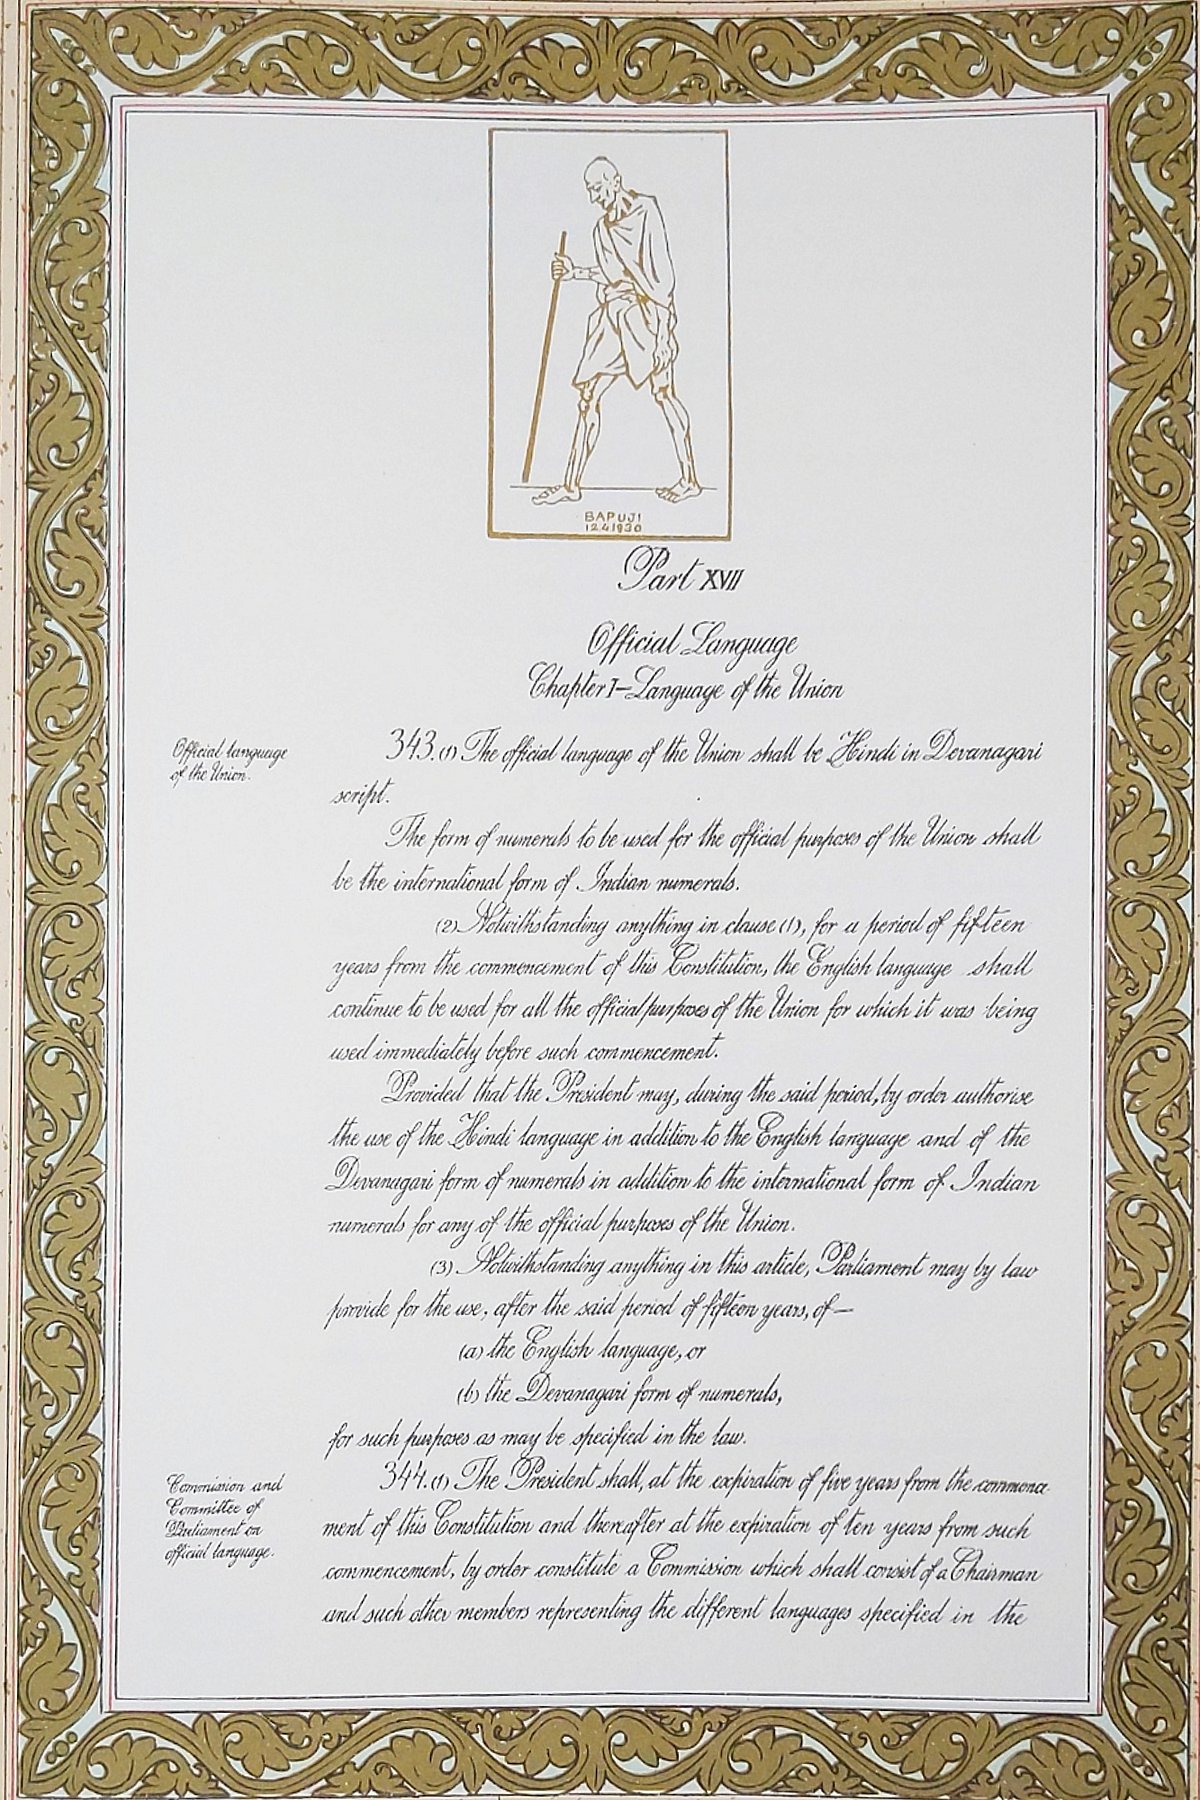 BAPUJI
12.4.1930
Part XVII
Official Language
Chapter I—Language of the Union
Official language
of the Union.
343.(1) The official language of the Union shall be Hindi in Devanagari
script.
The form of numerals to be used for the official purposes of the Union shall
be the international form of Indian numerals.
(2) Notwithstanding anything in clause (1), for a period of fifteen
years from the commencement of this Constitution, the English language shall
continue to be used for all the official purposes of the Union for which it was being
used immediately before such commencement.
Provided that the President may, during the said period, by order authorise
the use of the Hindi language in addition to the English language and of the
Devanagari form of numerals in addition to the international form of Indian
numerals for any of the official purposes of the Union.
(3) Notwithstanding anything in this article, Parliament may by law
provide for the use, after the said period of fifteen years, of—
(a) the English language, or
(b) the Devanagari form of numerals,
for such purposes as may be specified in the law.
Commission and
Committee of
Parliament on
official language.
344.(1) The President shall, at the expiration of five years from the commence-
ment of this Constitution and thereafter at the expiration of ten years from such
commencement, by order constitute a Commission which shall consist of a Chairman
and such other members representing the different languages specified in the